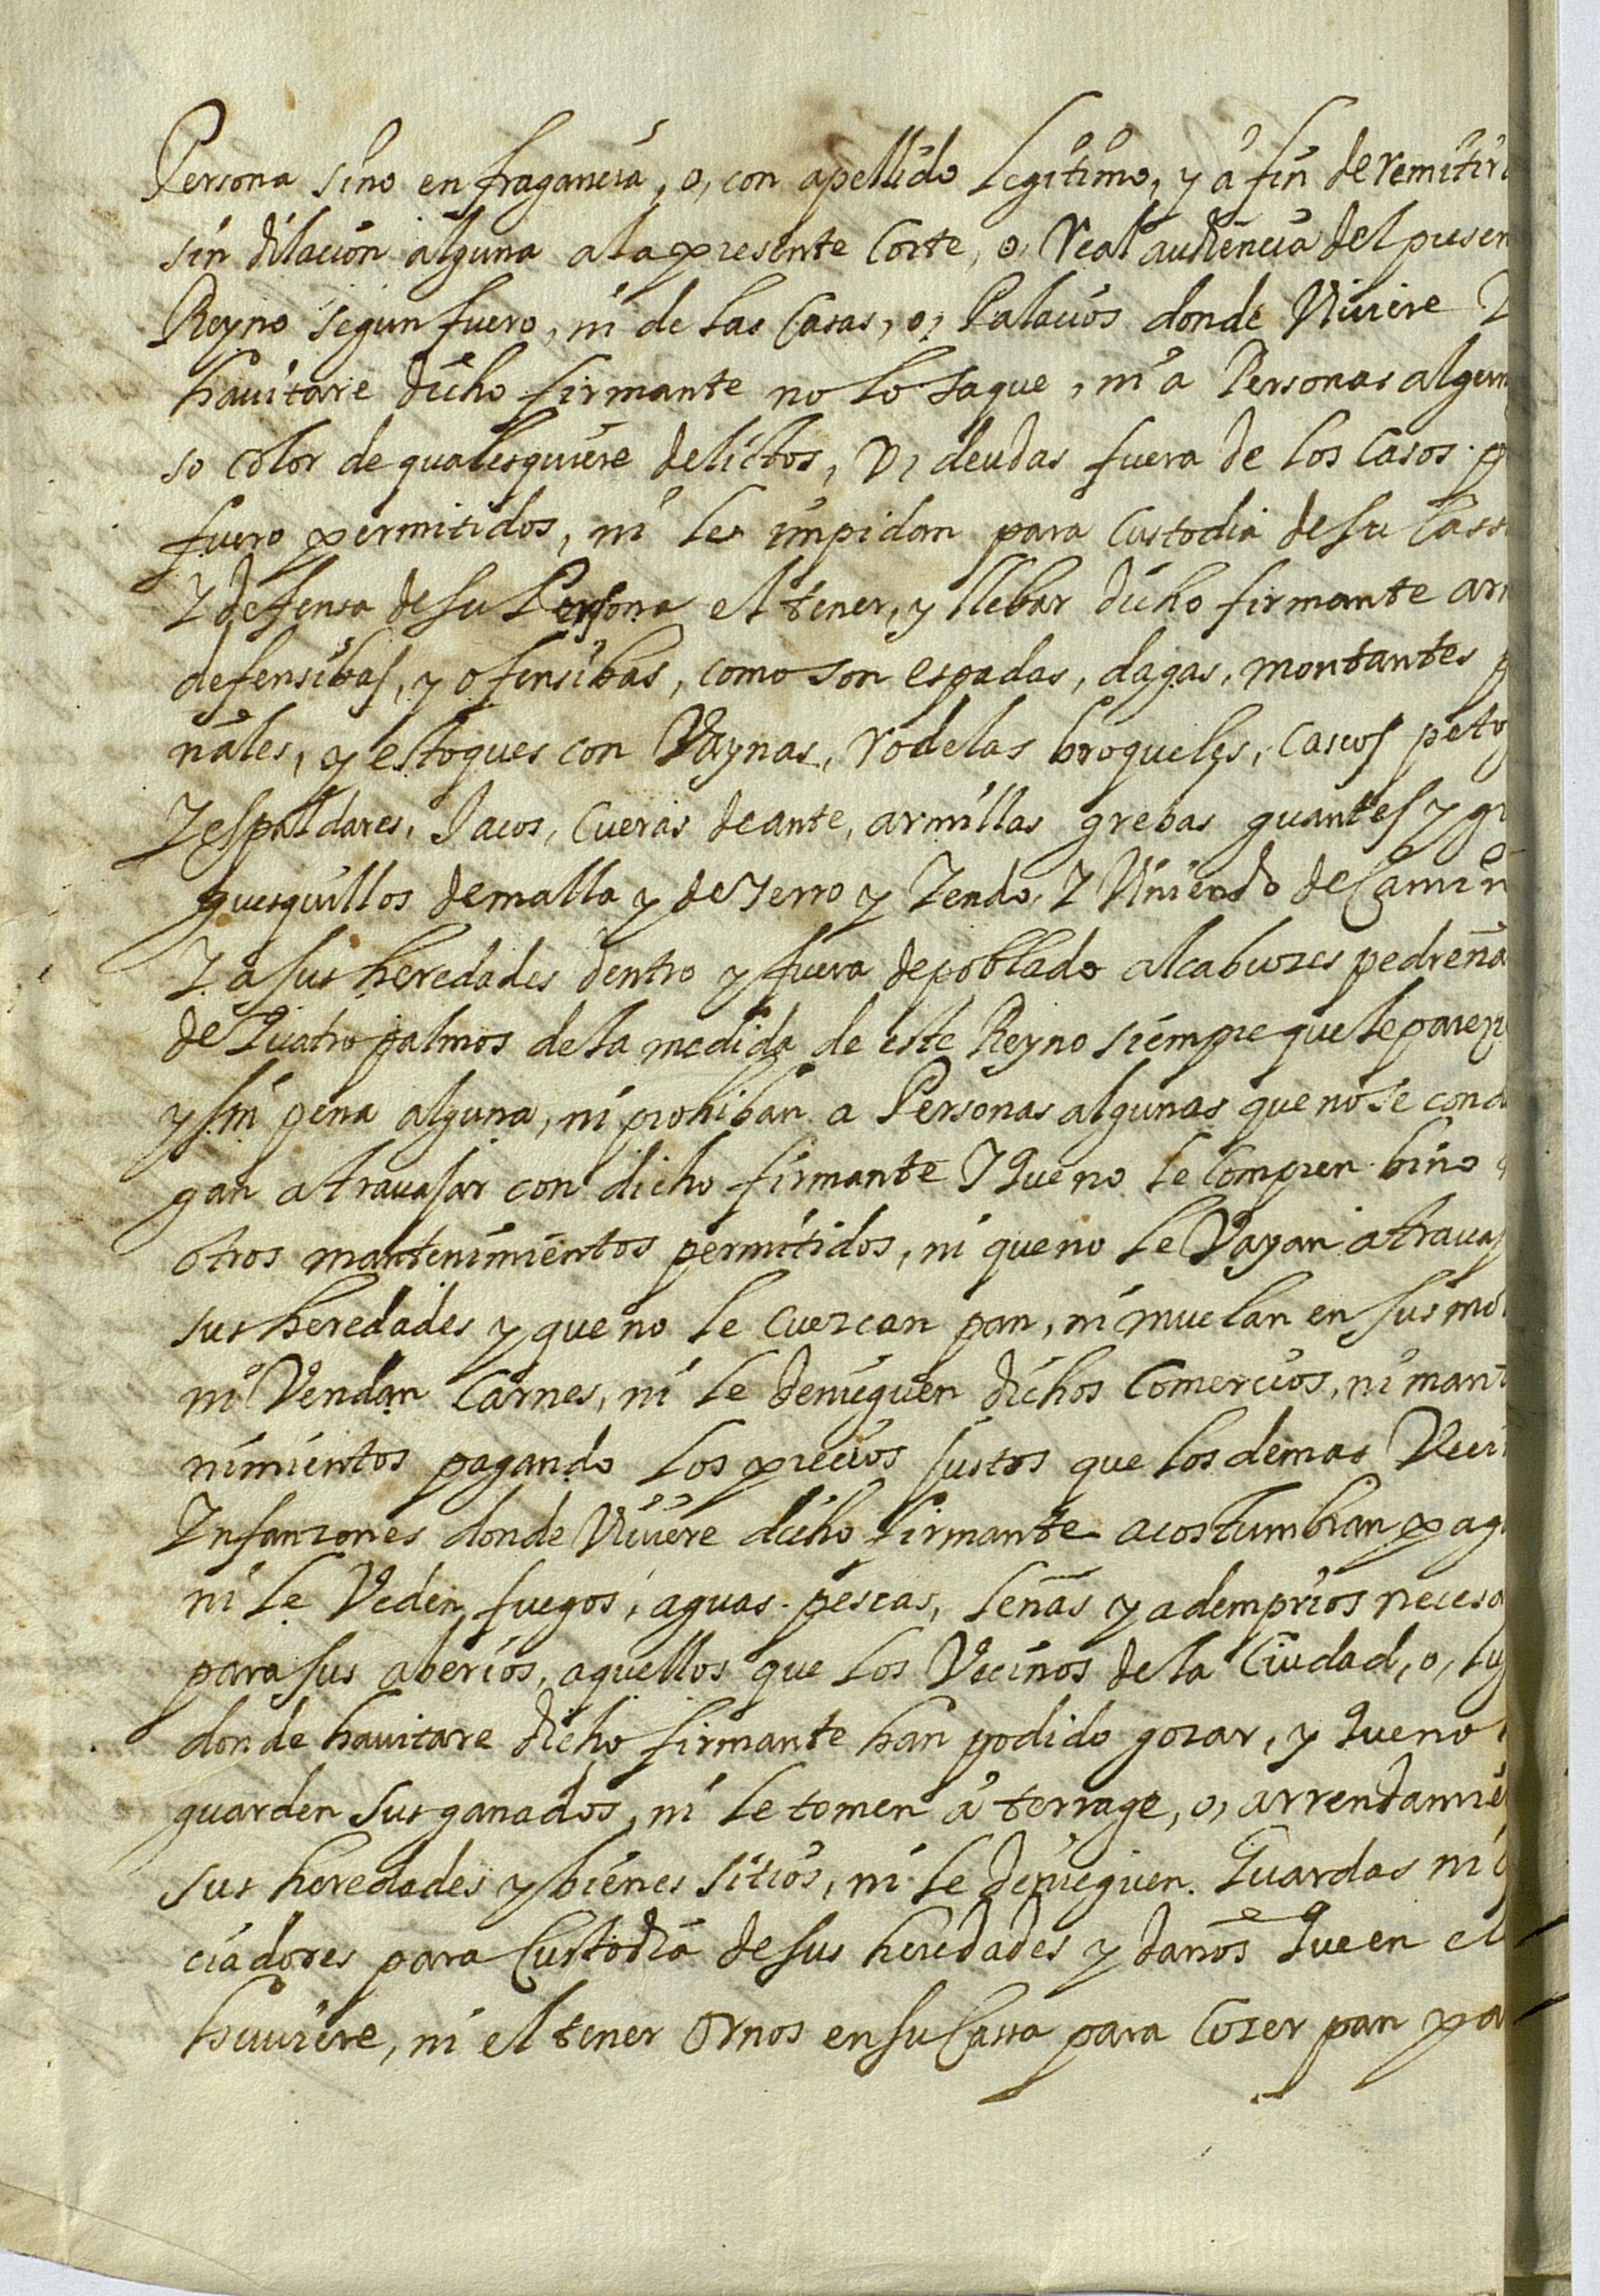 Persona sino en fragancia, o, con apellido legitimo, y a fin de remitir
sin dilacion alguna a la presente Corte, o, Real audiencia del presen
Reyno segun fuero, ni de las Casas, o, Palacios donde Viviere Y
havitare dicho firmante no lo saque, ni a Personas algun
so color de qualesquiere delictos, V, deudas fuera de los Casos p
fuero permitidos, ni le impidan para Custodia de su Cass
Y defensa de su Persona el tener, y llebar dicho firmante ar
defensibas, y ofensibas, como son espadas, dagas, montantes p
ñales, y estoques con Vaynas, rodelas broqueles, Cascos peto
Y espaldares, Jacos, Cueras de ante, armillas grebas guantes y g
guesquillos de malla y de Yerro y Yendo, Y Viniendo de Camin
Y a sus heredades dentro y fuera de poblado alcabuzes pedreña
de quatro palmos de la medida de este Reyno siempre que le parez
y sin pena alguna, ni prohiban a Personas algunas que no se cond
gan a travasar con dicho firmante Y que no le Compren bino
otros mantenimientos permitidos, ni que no le Vayan a travas
sus heredades y que no le cuezcan pan, ni muelan en sus mo
ni Vendan Carnes, ni le denieguen dichos Comercios, ni mant
nimientos pagando los precios justos que los demas Veci
Infanzones donde Viviere dicho firmante acostumbran pag
ni le Veden fuegos, aguas pescas, leñas y ademprios necesa
para sus aberios, aquellos que los Vecinos de la Ciudad, o, lug
donde havitare dicho firmante han podido gozar, y que no
guarden sus ganados, ni le tomen a terrage, o, arrendamie
sus heredades y bienes sitios, ni le denieguen Guardas ni
ciadores para Custodia de sus heredades y daños que en el
huviere, ni el tener Ornos en su Cassa para Cozer pan pa